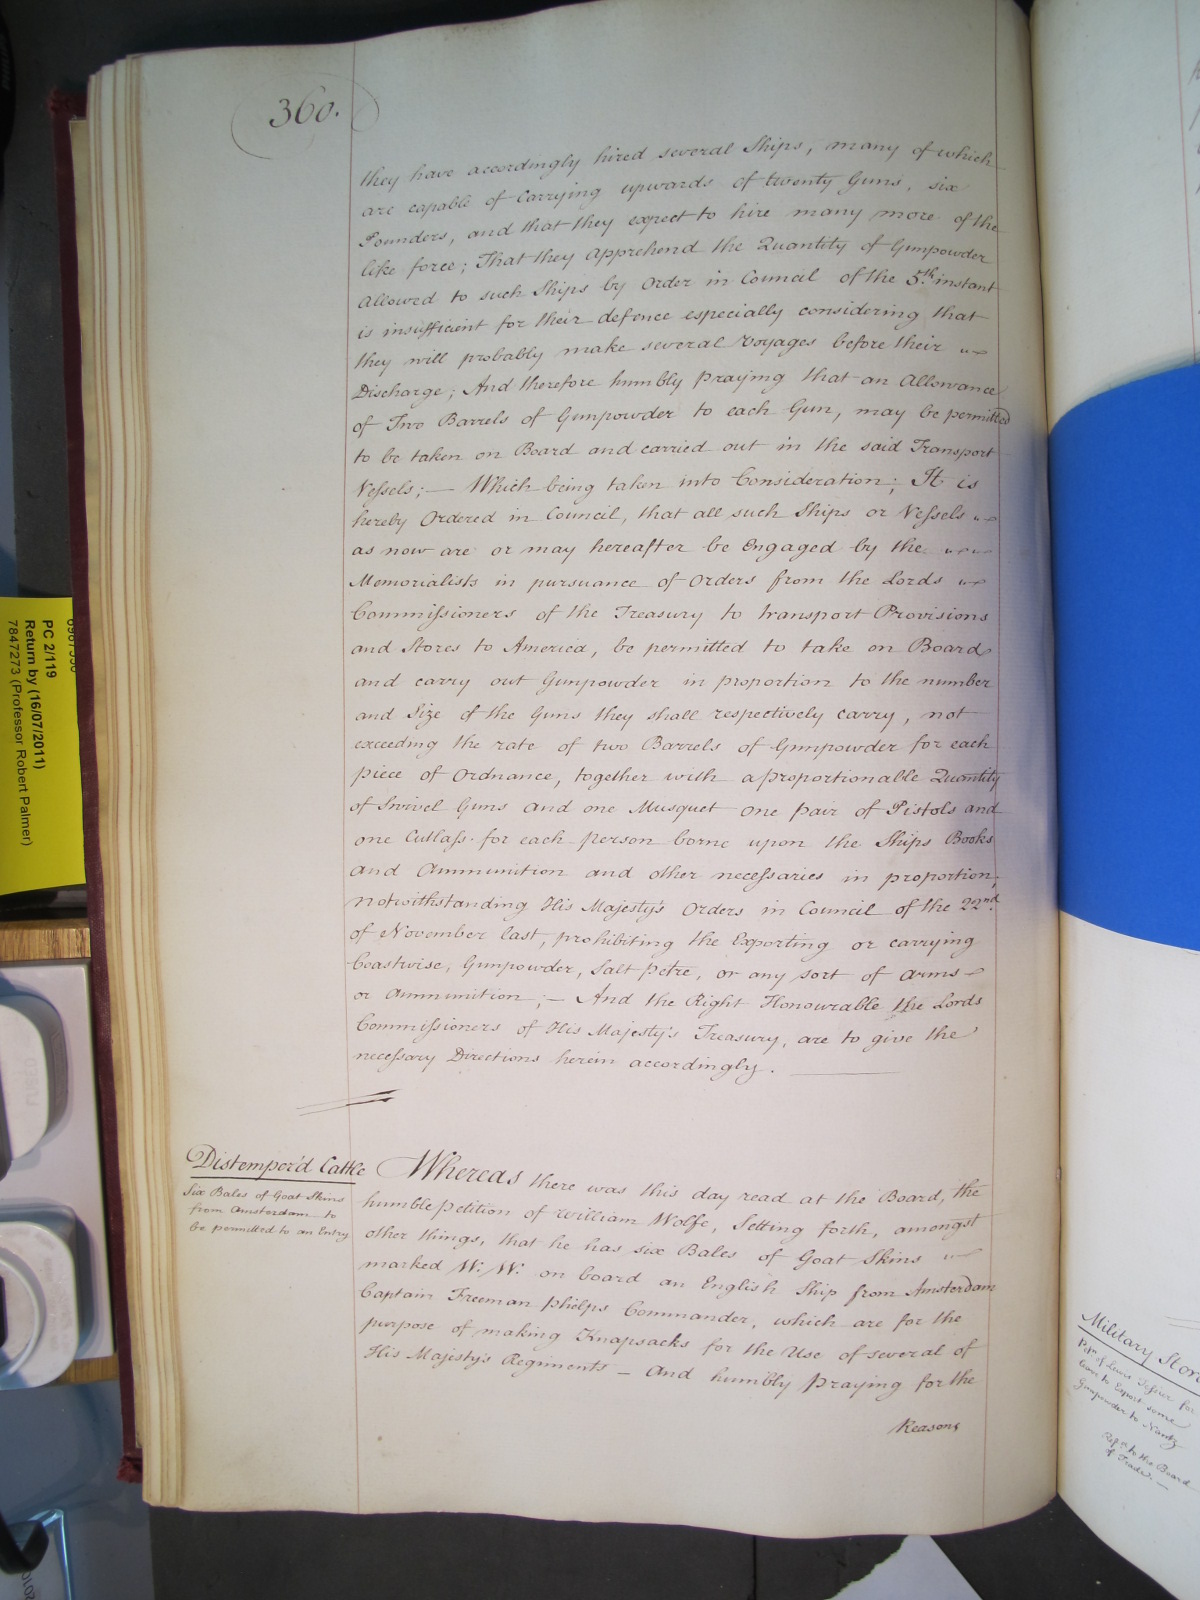 360.
they have accordingly hired several Ships, many of which
are capable of Carrying upwards of twenty Guns, six
Pounders, and that they expect to hire many more of the
like force; That they Apprehend the Quantity of Gunpowder
Allowed to such Ships by Order in Council of the 5th. instant
is insufficient for their defence especially considering that
they will probably make several Voyages before their
Discharge; And therefore humbly praying that an Allowance
of Two Barrels of Gunpowder to each Gun, may be permitted
to be taken on Board and carried out in the said Transport
Vessels; — Which being taken into Consideration; It is
hereby Ordered in Council, that all such Ships or Vessels
as now are or may hereafter be Engaged by the
Memorialists in pursuance of Orders from the Lords
Commissioners of the Treasury to transport Provisions
and Stores to America, be permitted to take on Board
and carry out Gunpowder in proportion to the number
and Size of the Guns they shall respectively carry, not
exceeding the rate of two Barrels of Gunpowder for each
piece of Ordnance, together with a proportionable Quantity
of Swivel Guns and one Musquet one pair of Pistols and
one Cutlass for each person borne upon the Ships Books
and Ammunition and other necessaries in proportion;
notwithstanding His Majesty's Orders in Council of the 22nd.
of November last, prohibiting the Exporting or carrying
Coastwise, Gunpowder, Salt Petre, or any sort of Arms
or Ammunition; — And the Right Honourable the Lords
Commissioners of His Majesty's Treasury, are to give the
necessary Directions herein accordingly.
Distemper'd Cattle
Six Bales of Goat Skins
from Amsterdam to
be permitted to an Entry
Whereas there was this day read at the Board, the
humble petition of William Wolfe, Setting forth, amongst
other things, that he has six Bales of Goat Skins
marked W: W: on board an English Ship from Amsterdam
Captain Freeman phelps Commander, which are for the
purpose of making Knapsacks for the Use of several of
His Majesty's Regiments — And humbly praying for the
Reasons
Military Stor
Petn. of Lewis Tessier for
leave to Export some
Gunpowder to Nantz
Refd. to the Board
of Trade. —
PC 2/119
Return by (16/07/2011)
7847273 (Professor Robert Palmer)